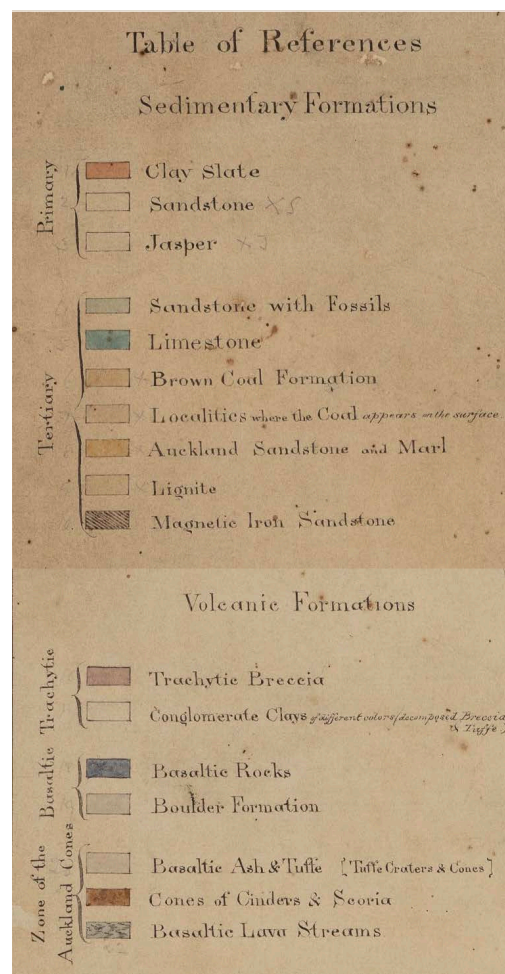 Table of References
Sedimentary Formations
Primary
Clay Slate
Sandstone
Jasper
Tertiary
Sandstone with Fossils
Limestone
Brown Coal Formation
Localities where the Coal appears on the surface
Auckland Sandstone and Marl
Lignite
Magnetic Iron Sandstone
Volcanic Formations
Trachytic
Trachytic Breccia
Conglomerate Clays of different colors (decomposed Breccia
& Tuffe)
Basaltic
Basaltic Rocks
Boulder Formation
Zone of the
Auckland Cones
Basaltic Ash & Tuffe [Tuffe Craters & Cones]
Cones of Cinders & Scoria
Basaltic Lava Streams